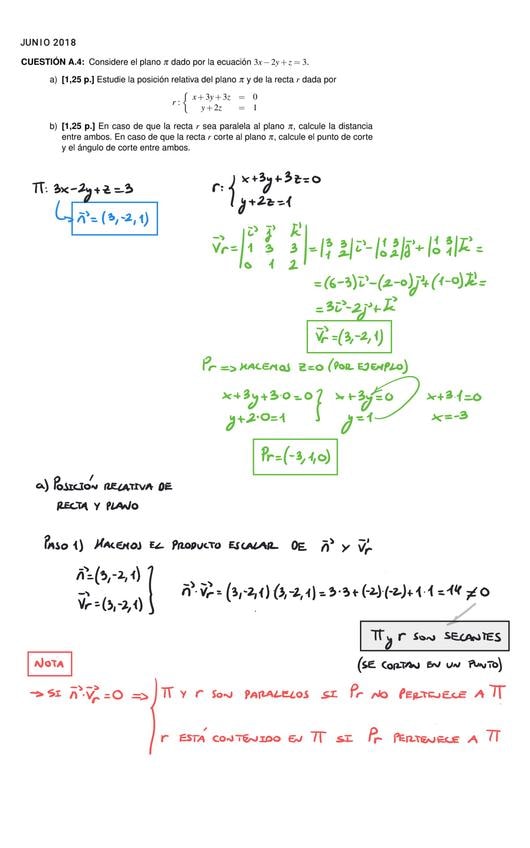 JUNIO 2018
CUESTIÓN A.4: Considere el plano π dado por la ecuación 3x − 2y + z = 3.
a) [1,25 p.] Estudie la posición relativa del plano π y de la recta r dada por
r : { x + 3y + 3z = 0
y + 2z = 1
b) [1,25 p.] En caso de que la recta r sea paralela al plano π, calcule la distancia
entre ambos. En caso de que la recta r corte al plano π, calcule el punto de corte
y el ángulo de corte entre ambos.
π: 3x-2y+z=3
n⃗ = (3,-2,1)
r: { x+3y+3z=0
y+2z=1
v⃗r = | i⃗ j⃗ k⃗ | = |3 3| i⃗ - |1 3| j⃗ + |1 3| k⃗ =
|1 3 3| |1 2| |0 2| |0 1|
|0 1 2|
= (6-3)i⃗ - (2-0)j⃗ + (1-0)k⃗ =
= 3i⃗ - 2j⃗ + k⃗
v⃗r = (3,-2,1)
Pr => HACEMOS z=0 (POR EJEMPLO)
x+3y+3·0=0 } x+3y=0 x+3·1=0
y+2·0=1 y=1 x=-3
Pr=(-3,1,0)
a) POSICIÓN RELATIVA DE
RECTA Y PLANO
PASO 1) HACEMOS EL PRODUCTO ESCALAR DE n⃗ Y v⃗r
n⃗=(3,-2,1) }
v⃗r=(3,-2,1)
n⃗·v⃗r = (3,-2,1)(3,-2,1) = 3·3+(-2)·(-2)+1·1 = 14 ≠ 0
π y r SON SECANTES
(SE CORTAN EN UN PUNTO)
NOTA
→ SI n⃗·v⃗r=0 => { π Y r SON PARALELOS SI Pr NO PERTENECE A π
r ESTÁ CONTENIDO EN π SI Pr PERTENECE A π